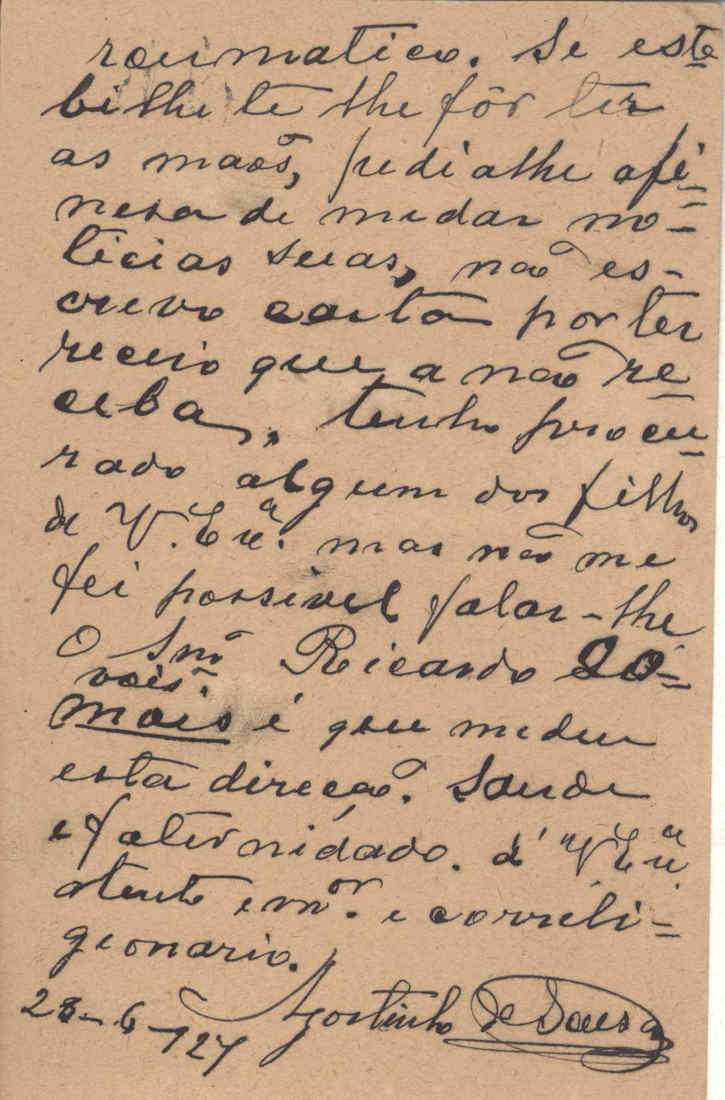 roumatico. Se este
bilhete lhe fôr ter
as maõs, pedialhe afi-
nesa de medar no-
ticias suas, naõ es-
crevo carta por ter
receio que a naõ re-
ceba, tenho procu-
rado algum dos filhos
de V. Exª. mas naõ me
foi possivel falar-lhe
O Snr Ricardo Co-
vais
mais é que medeu
esta direcaõ. Saude
e faternidade. d'V Exª.
atento e mor. e correli-
gionario.
Agostinho de Sousa
28-6-927